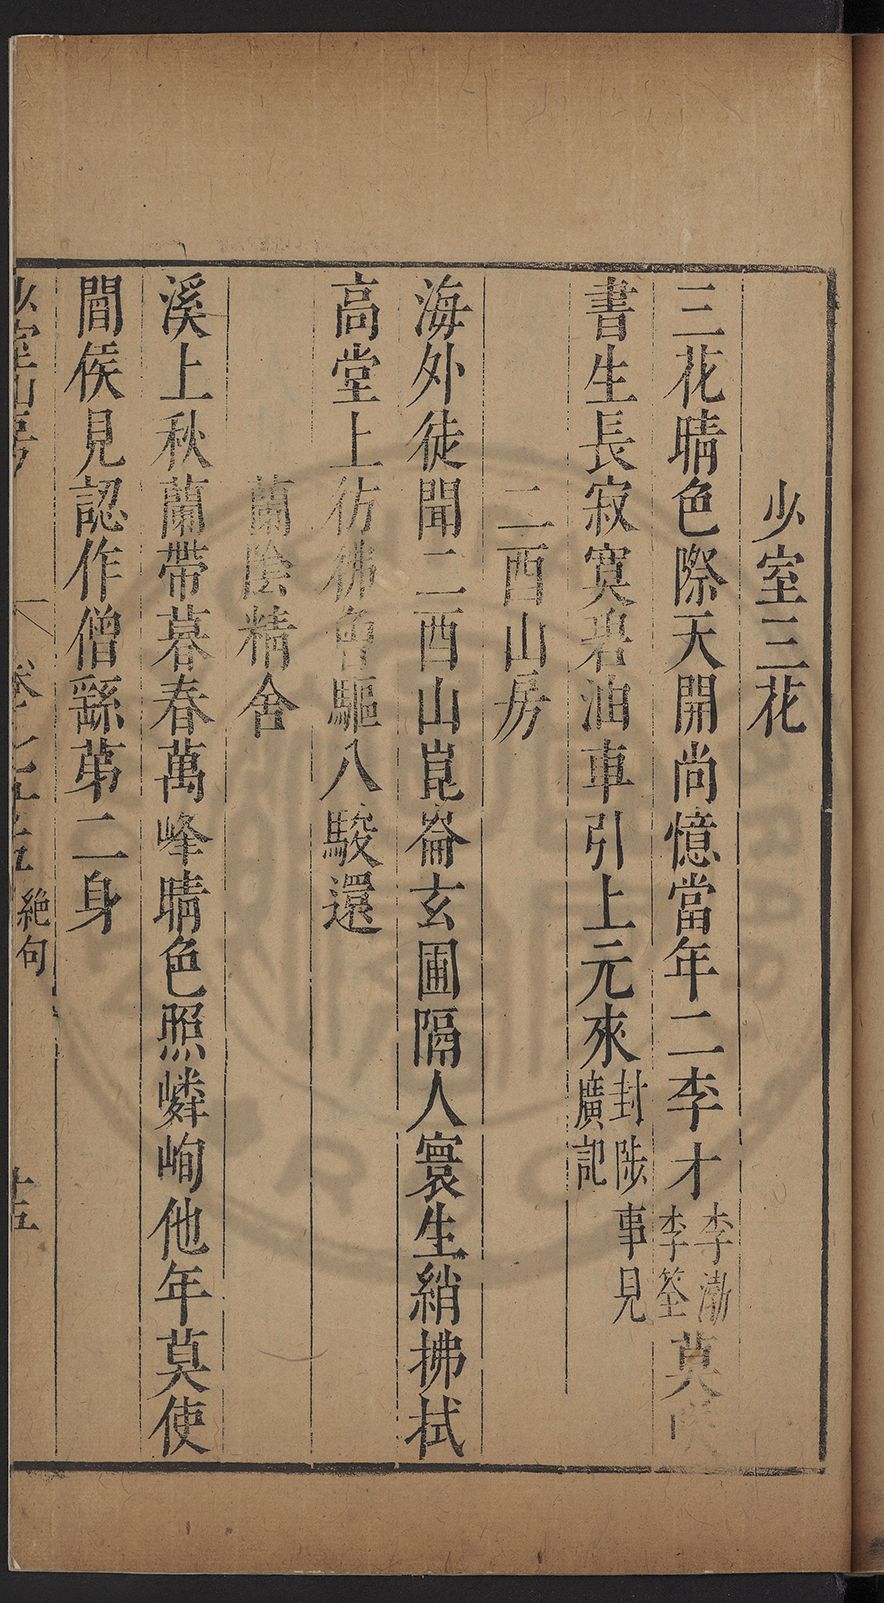 少室三花
三花晴色際天開尚憶當年二李才李渤李筌莫
書生長寂寞碧油車引上元來封陟事見廣記
二酉山房
海外徒聞二酉山崑崙玄圃隔人寰生綃拂拭
高堂上彷彿曾驅八駿還
蘭陰精舍
溪上秋蘭帶暮春萬峰晴色照嶙峋他年莫使
閭侯見認作僧繇第二身
少室山房 卷七十五 絕句 十五